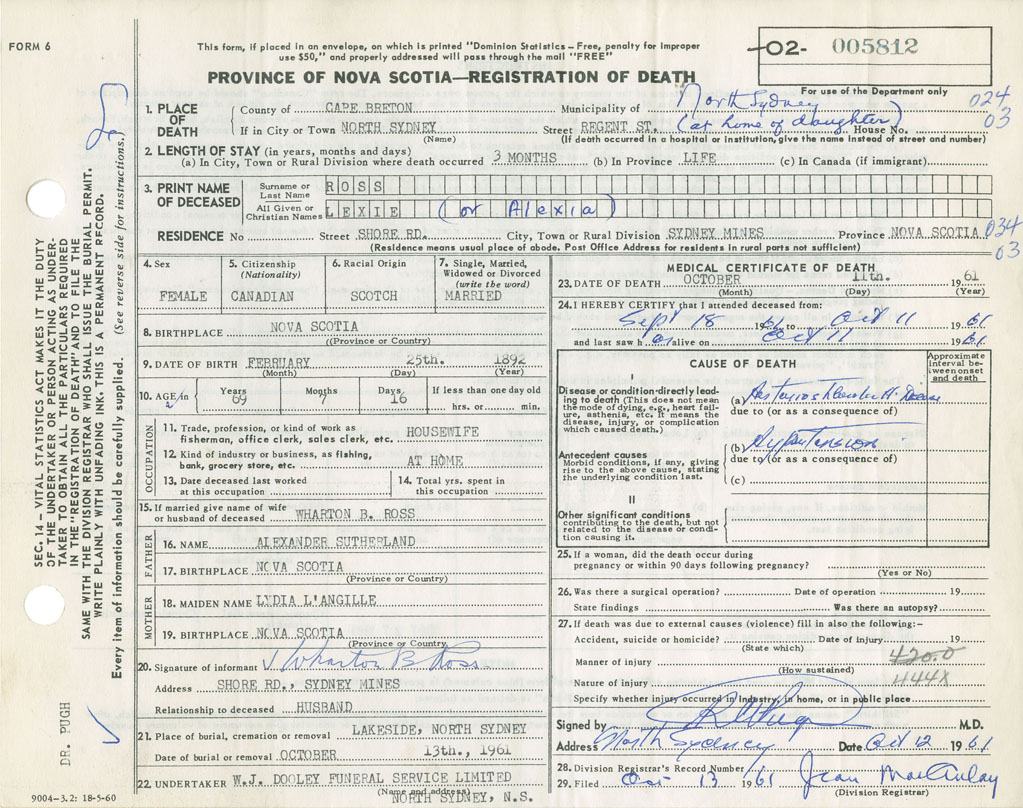 FORM 6
This form, if placed in an envelope, on which is printed "Dominion Statistics – Free, penalty for improper
use $50," and properly addressed will pass through the mail "FREE"
O2- 005812
PROVINCE OF NOVA SCOTIA—REGISTRATION OF DEATH
For use of the Department only
1. PLACE OF DEATH
County of CAPE BRETON Municipality of North Sydney 024
If in City or Town NORTH SYDNEY Street REGENT ST. (at home of daughter) House No. 03
(Name) (If death occurred in a hospital or institution, give the name instead of street and number)
2. LENGTH OF STAY (in years, months and days)
(a) In City, Town or Rural Division where death occurred 3 MONTHS (b) In Province LIFE (c) In Canada (if immigrant)
3. PRINT NAME OF DECEASED
Surname or Last Name ROSS
All Given or Christian Names LEXIE (or Alexia)
RESIDENCE No Street SHORE RD. City, Town or Rural Division SYDNEY MINES Province NOVA SCOTIA 034
(Residence means usual place of abode. Post Office Address for residents in rural parts not sufficient) 03
4. Sex FEMALE
5. Citizenship (Nationality) CANADIAN
6. Racial Origin SCOTCH
7. Single, Married, Widowed or Divorced (write the word) MARRIED
8. BIRTHPLACE NOVA SCOTIA
((Province or Country)
9. DATE OF BIRTH FEBRUARY 25th. 1892
(Month) (Day) (Year)
10. AGE/n Years 69 Months 7 Days 16 If less than one day old
hrs. or min.
OCCUPATION
11. Trade, profession, or kind of work as
fisherman, office clerk, sales clerk, etc. HOUSEWIFE
12. Kind of industry or business, as fishing,
bank, grocery store, etc. AT HOME
13. Date deceased last worked
at this occupation
14. Total yrs. spent in
this occupation
15. If married give name of wife
or husband of deceased WHARTON B. ROSS
FATHER
16. NAME ALEXANDER SUTHERLAND
17. BIRTHPLACE NOVA SCOTIA
(Province or Country)
MOTHER
18. MAIDEN NAME LYDIA L'ANGILLE
19. BIRTHPLACE NOVA SCOTIA
(Province or Country)
20. Signature of informant J Wharton B Ross
Address SHORE RD., SYDNEY MINES
Relationship to deceased HUSBAND
21. Place of burial, cremation or removal LAKESIDE, NORTH SYDNEY
Date of burial or removal OCTOBER 13th., 1961
22. UNDERTAKER W.J. DOOLEY FUNERAL SERVICE LIMITED
(Name and address)
NORTH SYDNEY, N.S.
9004–3.2: 18-5-60
MEDICAL CERTIFICATE OF DEATH
23. DATE OF DEATH OCTOBER 11th. 1961
(Month) (Day) (Year)
24. I HEREBY CERTIFY that I attended deceased from:
Sept 18 1961 to Oct 11 1961
and last saw her alive on Oct 11 1961
CAUSE OF DEATH
Approximate interval between onset and death
I
Disease or condition directly leading to death (This does not mean
the mode of dying, e.g., heart failure, asthenia, etc. It means the
disease, injury, or complication
which caused death.)
(a) Disease
due to (or as a consequence of)
Antecedent causes
Morbid conditions, if any, giving
rise to the above cause, stating
the underlying condition last.
(b) Hypertension
due to (or as a consequence of)
(c)
II
Other significant conditions
contributing to the death, but not
related to the disease or condition causing it.
25. If a woman, did the death occur during
pregnancy or within 90 days following pregnancy?
(Yes or No)
26. Was there a surgical operation? Date of operation 19
State findings Was there an autopsy?
27. If death was due to external causes (violence) fill in also the following:–
Accident, suicide or homicide? Date of injury 19
(State which)
Manner of injury 420.0
(How sustained)
Nature of injury 444X
Specify whether injury occurred in industry, in home, or in public place
Signed by M.D.
Address North Sydney Date Oct 12 1961
28. Division Registrar's Record Number
29. Filed Oct 13 1961 Jean MacAulay
(Division Registrar)
SEC. 14 – VITAL STATISTICS ACT MAKES IT THE DUTY
OF THE UNDERTAKER OR PERSON ACTING AS UNDER-
TAKER TO OBTAIN ALL THE PARTICULARS REQUIRED
IN THE "REGISTRATION OF DEATH" AND TO FILE THE
SAME WITH THE DIVISION REGISTRAR WHO SHALL ISSUE THE BURIAL PERMIT.
WRITE PLAINLY WITH UNFADING INK. THIS IS A PERMANENT RECORD.
Every item of information should be carefully supplied. (See reverse side for instructions.)
DR. PUGH